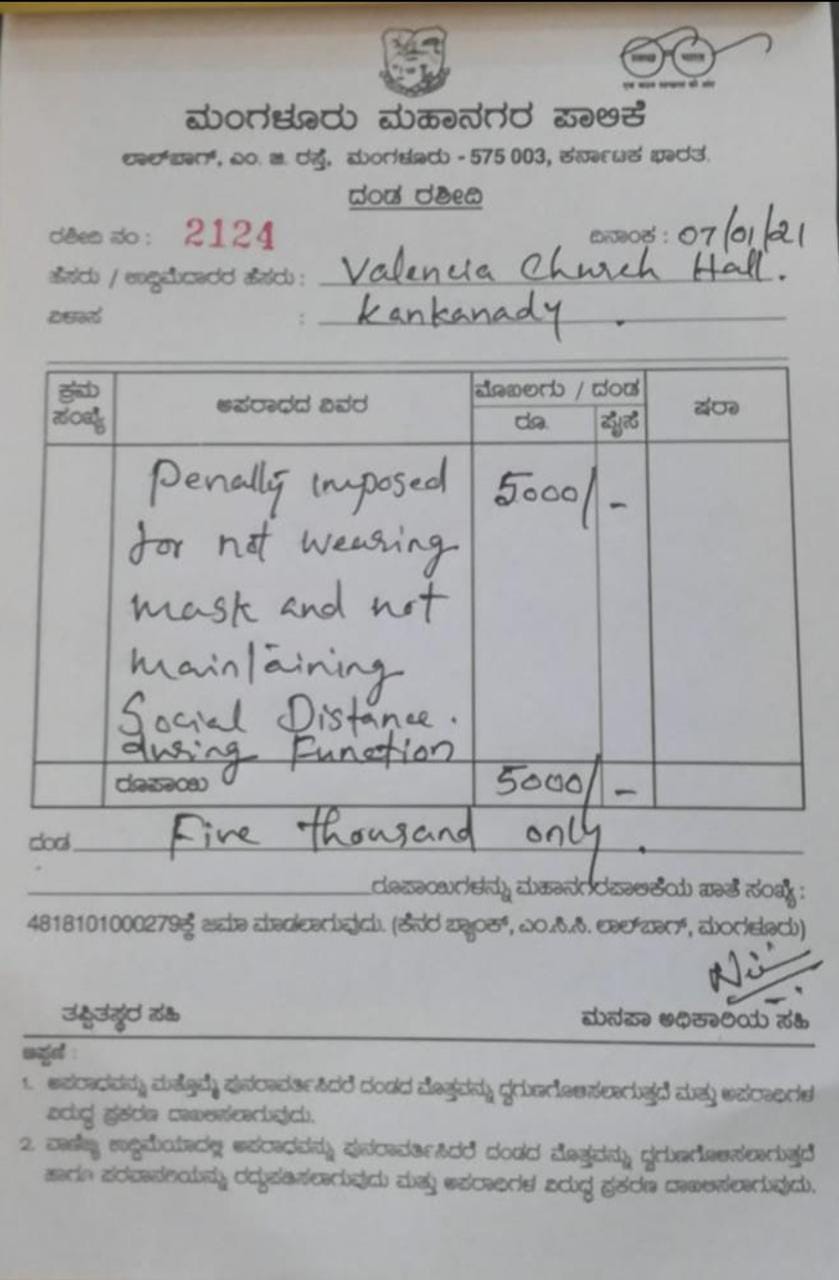 ಮಂಗಳೂರು ಮಹಾನಗರ ಪಾಲಿಕೆ
ಲಾಲ್‌ಬಾಗ್, ಎಂ. ಜಿ. ರಸ್ತೆ, ಮಂಗಳೂರು - 575 003, ಕರ್ನಾಟಕ ಭಾರತ.
ದಂಡ ರಶೀದಿ
ರಶೀದಿ ನಂ : 2124 ದಿನಾಂಕ : 07/01/21
ಹೆಸರು / ಉದ್ದಿಮೆದಾರರ ಹೆಸರು : Valencia Church Hall.
ವಿಳಾಸ : Kankanady .
ಕ್ರಮ ಸಂಖ್ಯೆ ಅಪರಾಧದ ವಿವರ ಮೊಬಲಗು / ದಂಡ ಷರಾ
ರೂ. ಪೈಸೆ
Penalty imposed 5000/ -
for not wearing
mask and not
maintaining
Social Distance .
during Function
ರೂಪಾಯಿ 5000/ -
ದಂಡ Five thousand only .
ರೂಪಾಯಿಗಳನ್ನು ಮಹಾನಗರಪಾಲಿಕೆಯ ಖಾತೆ ಸಂಖ್ಯೆ :
4818101000279ಕ್ಕೆ ಜಮಾ ಮಾಡಲಾಗುವುದು. (ಕೆನರ ಬ್ಯಾಂಕ್, ಎಂ.ಸಿ.ಸಿ. ಲಾಲ್‌ಬಾಗ್, ಮಂಗಳೂರು)
ತಪ್ಪಿತಸ್ಥರ ಸಹಿ ಮನಪಾ ಅಧಿಕಾರಿಯ ಸಹಿ
ಟಿಪ್ಪಣಿ :
1. ಅಪರಾಧವನ್ನು ಮತ್ತೊಮ್ಮೆ ಪುನರಾವರ್ತಿಸಿದರೆ ದಂಡದ ಮೊತ್ತವನ್ನು ದ್ವಿಗುಣಗೊಳಿಸಲಾಗುತ್ತದೆ ಮತ್ತು ಅಪರಾಧಿಗಳ
ವಿರುದ್ಧ ಪ್ರಕರಣ ದಾಖಲಿಸಲಾಗುವುದು.
2. ವಾಣಿಜ್ಯ ಉದ್ದಿಮೆಯಾದಲ್ಲಿ ಅಪರಾಧವನ್ನು ಪುನರಾವರ್ತಿಸಿದರೆ ದಂಡದ ಮೊತ್ತವನ್ನು ದ್ವಿಗುಣಗೊಳಿಸಲಾಗುತ್ತದೆ
ಹಾಗೂ ಪರವಾನಗಿಯನ್ನು ರದ್ದುಪಡಿಸಲಾಗುವುದು ಮತ್ತು ಅಪರಾಧಿಗಳ ವಿರುದ್ಧ ಪ್ರಕರಣ ದಾಖಲಿಸಲಾಗುವುದು.